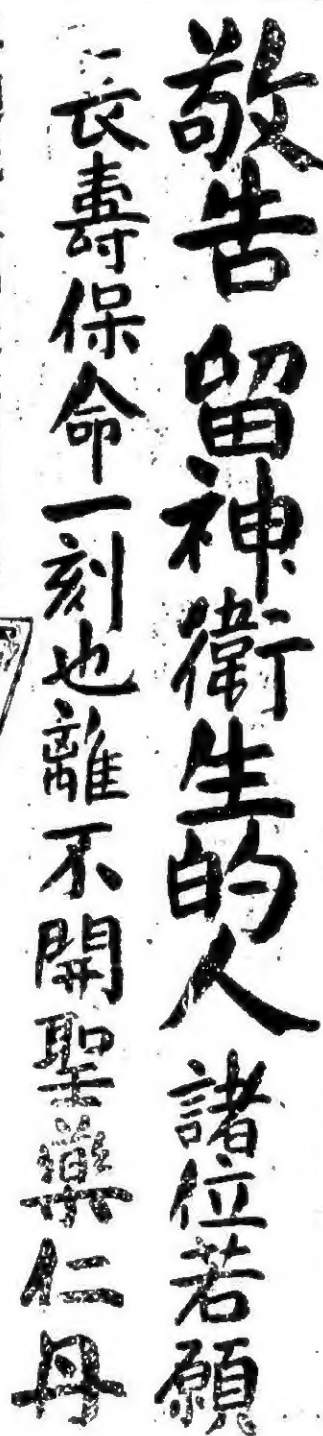 敬告 留神衛生的人 諸位若願
長壽保命一刻也離不開聖藥仁丹